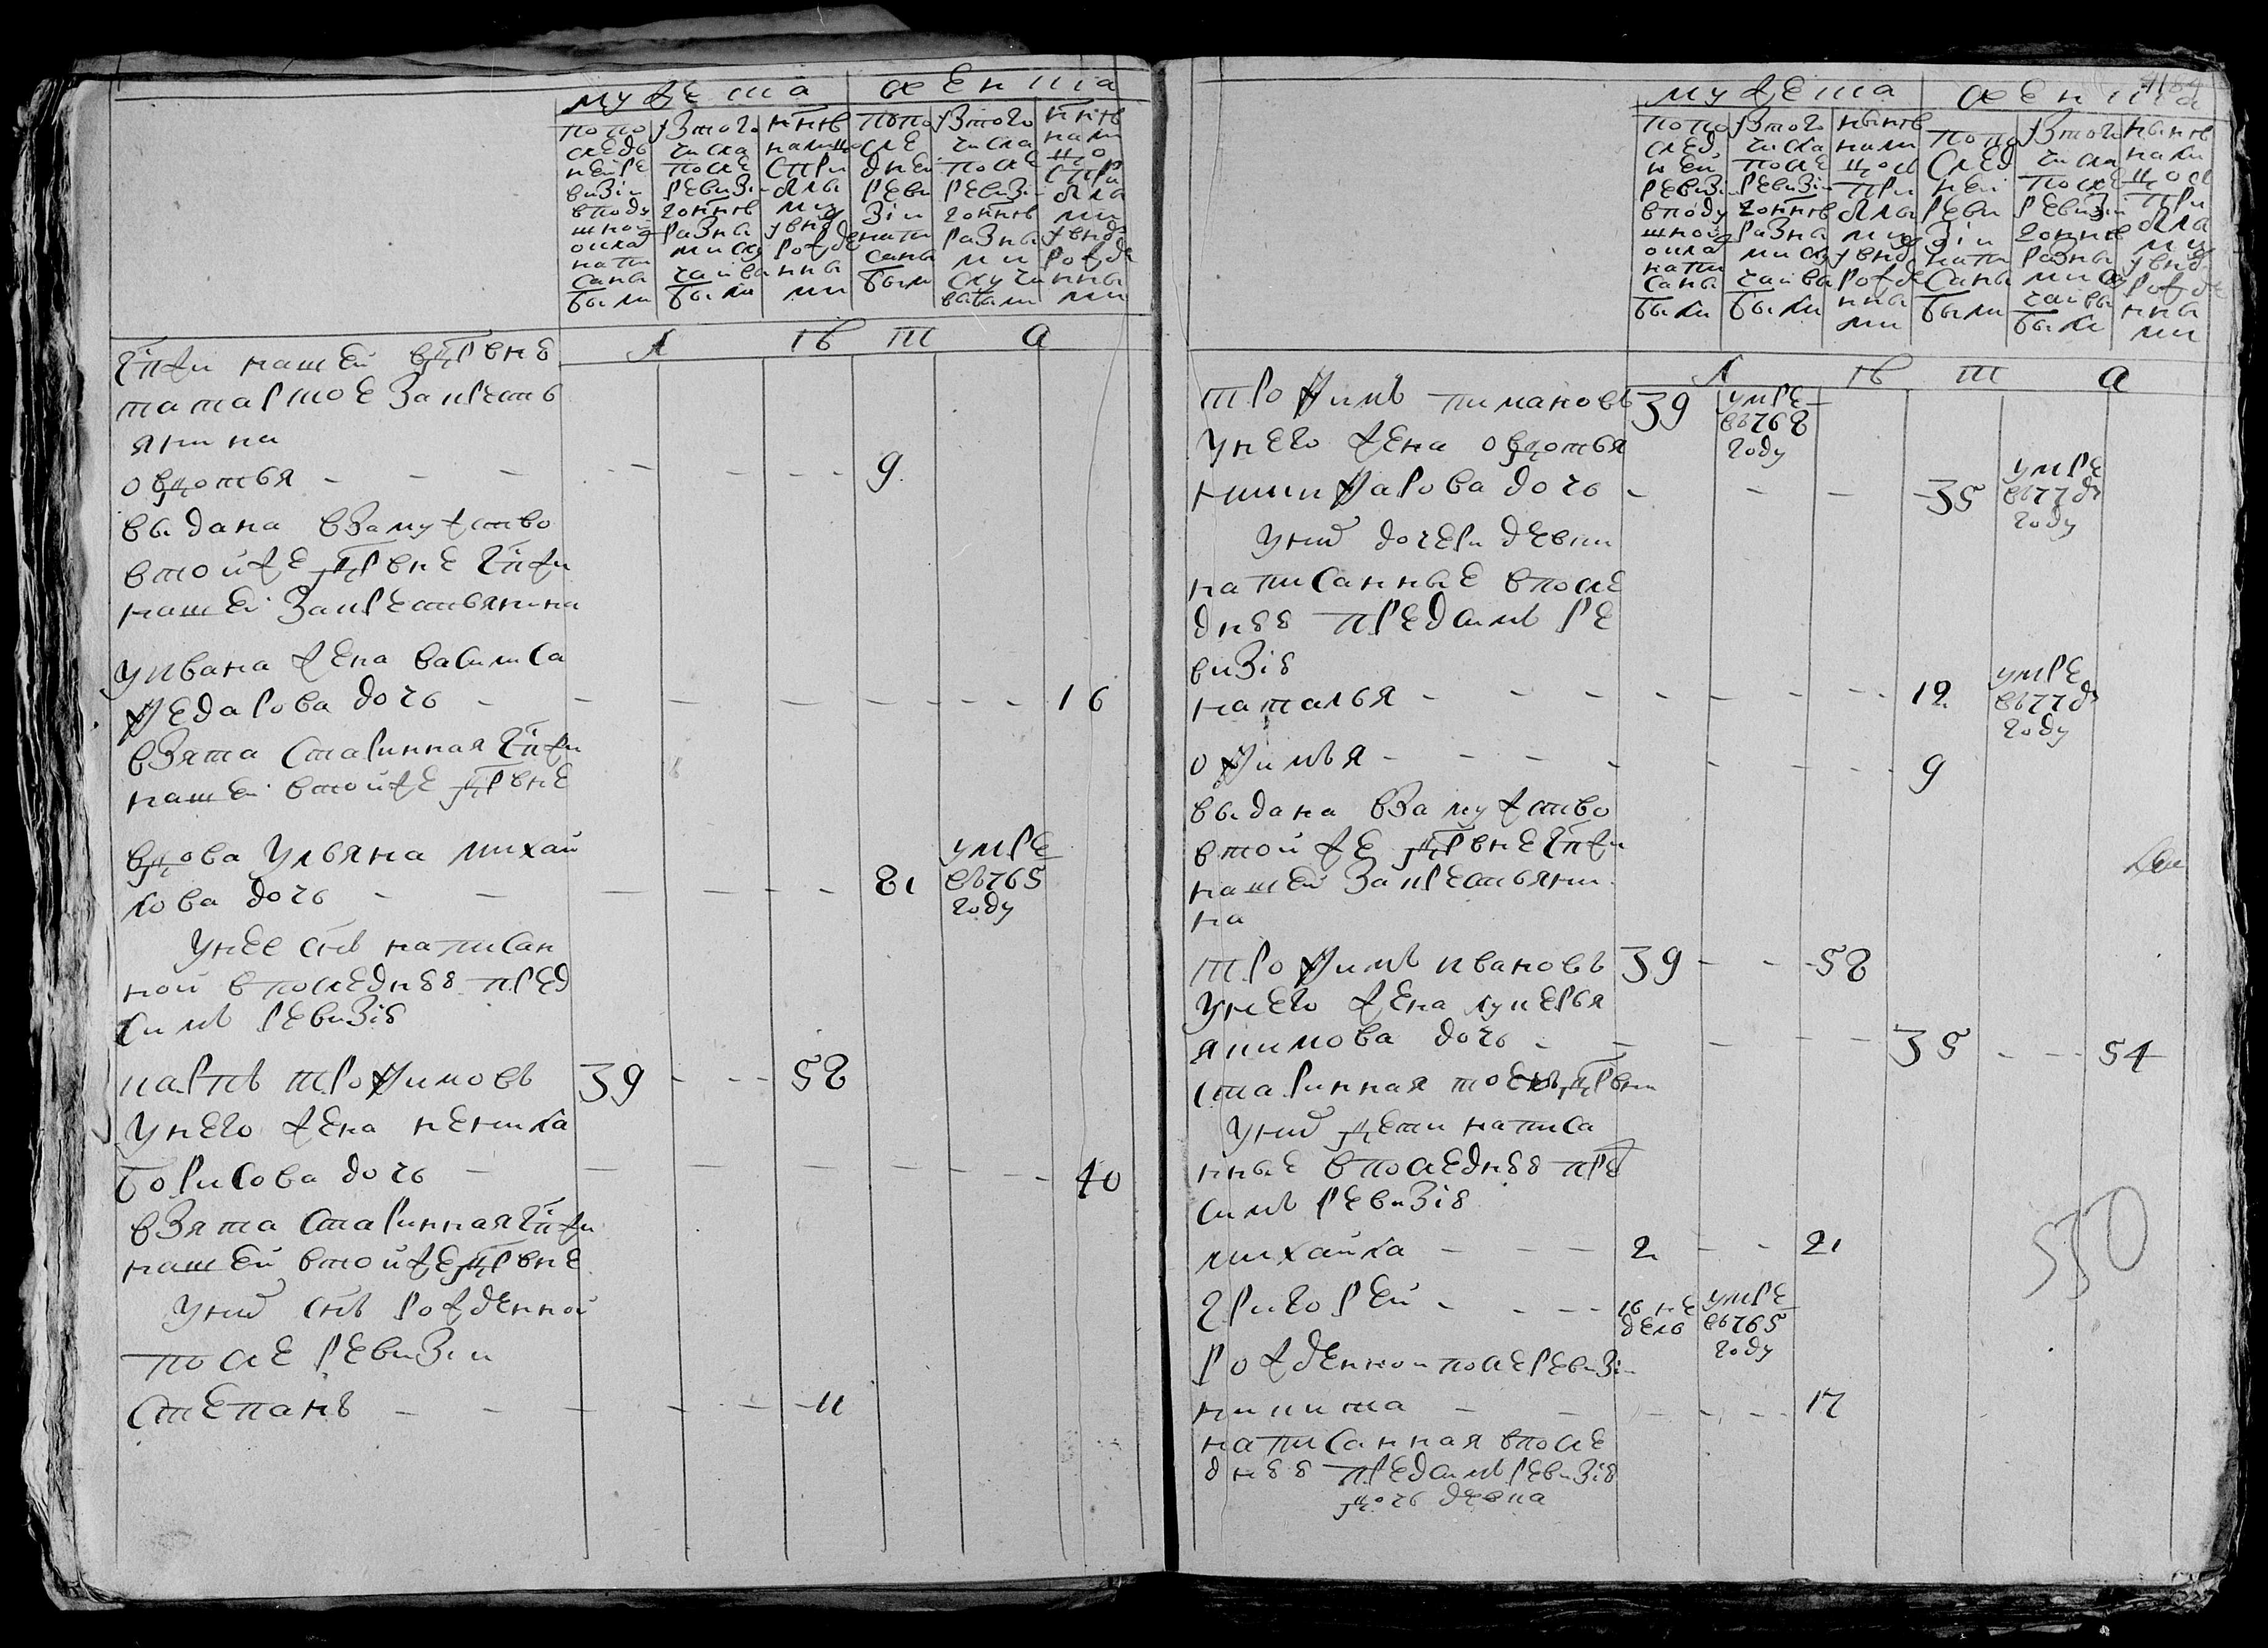 мужеска женска
попо
следь
ней ре
визии
в поду
шной
окла
напи
саны
были
из того
числа
после
ревизии
до ннѣ
разны
ми слу
чаи вы
были
ннѣ
на лицо
с при
былы
ми и
вновь
рожде
нны
ми
попо
сле
дней
реви
зии
напи
саны
были
из того
числа
после
ревизии
до ннѣ
разны
ми
случаи
выбыли
ннѣ
нали
цо
с при
былы
ми и
вновь
рожде
нны
ми
л ѣ т а
гпжи нашей в дрвнѣ
за крестья
янина
овдотья 9
выдана в замужство
в той же дрвне гпжи
нашей за крестьянина
у ивана жена василиса
ѳедарова дочь 16
взята старинная гпжи
нашей в той же дрвне
вдова ульяна михаи
лова дочь 81 умре
въ 765
году
у нее снъ написан
ной в последнѣю пред
симъ ревизiю
карпъ троѳимовъ 39 58
у него жена
борисова дочь 40
взята старинная гпжи
нашей в той же дрвне
у них снъ рожденной
после ревизии
степанъ 11
мужеска женска
попо
след
ней
ревизи
в поду
шной
окла
напи
саны
были
из того
числа
после
ревизии
до ннѣ
разны
ми слу
чаи вы
были
нынѣ
нали
цо с
при
былы
ми и
вновь
рожде
нны
ми
попо
след
ней
реви
зии
напи
саны
были
из того
числа
после
ревизии
до ннѣ
разны
ми слу
чаи вы
были
нынѣ
нали
цо с
при
былы
ми и
вновь
рожде
нны
ми
л ѣ т а
троѳимъ тимановъ 39 умре
въ 768
году
у него жена овдотья
никиѳарова дочь 35 умре
въ 77д
году
у них дочери девки
написанные в после
днѣю пред симъ ре
визiю
наталья 12 умре
въ 77д
году
оѳимья 9
выдана в замужство
в той же дрвне гпжи
нашей за крестьяни
на
троѳимъ ивановъ 39 58
у него жена лукерья
якимова дочь 35 54
старинная тоежъ дрвни
у них дети написа
нные в последнѣю пре
симъ ревизiю
михайла 2 21
григорей 16 не
дель умре
въ 765
году
рожденной после ревизiи
никита 17
написанная в после
днѣю пред симъ ревизiю
дочь девка
550